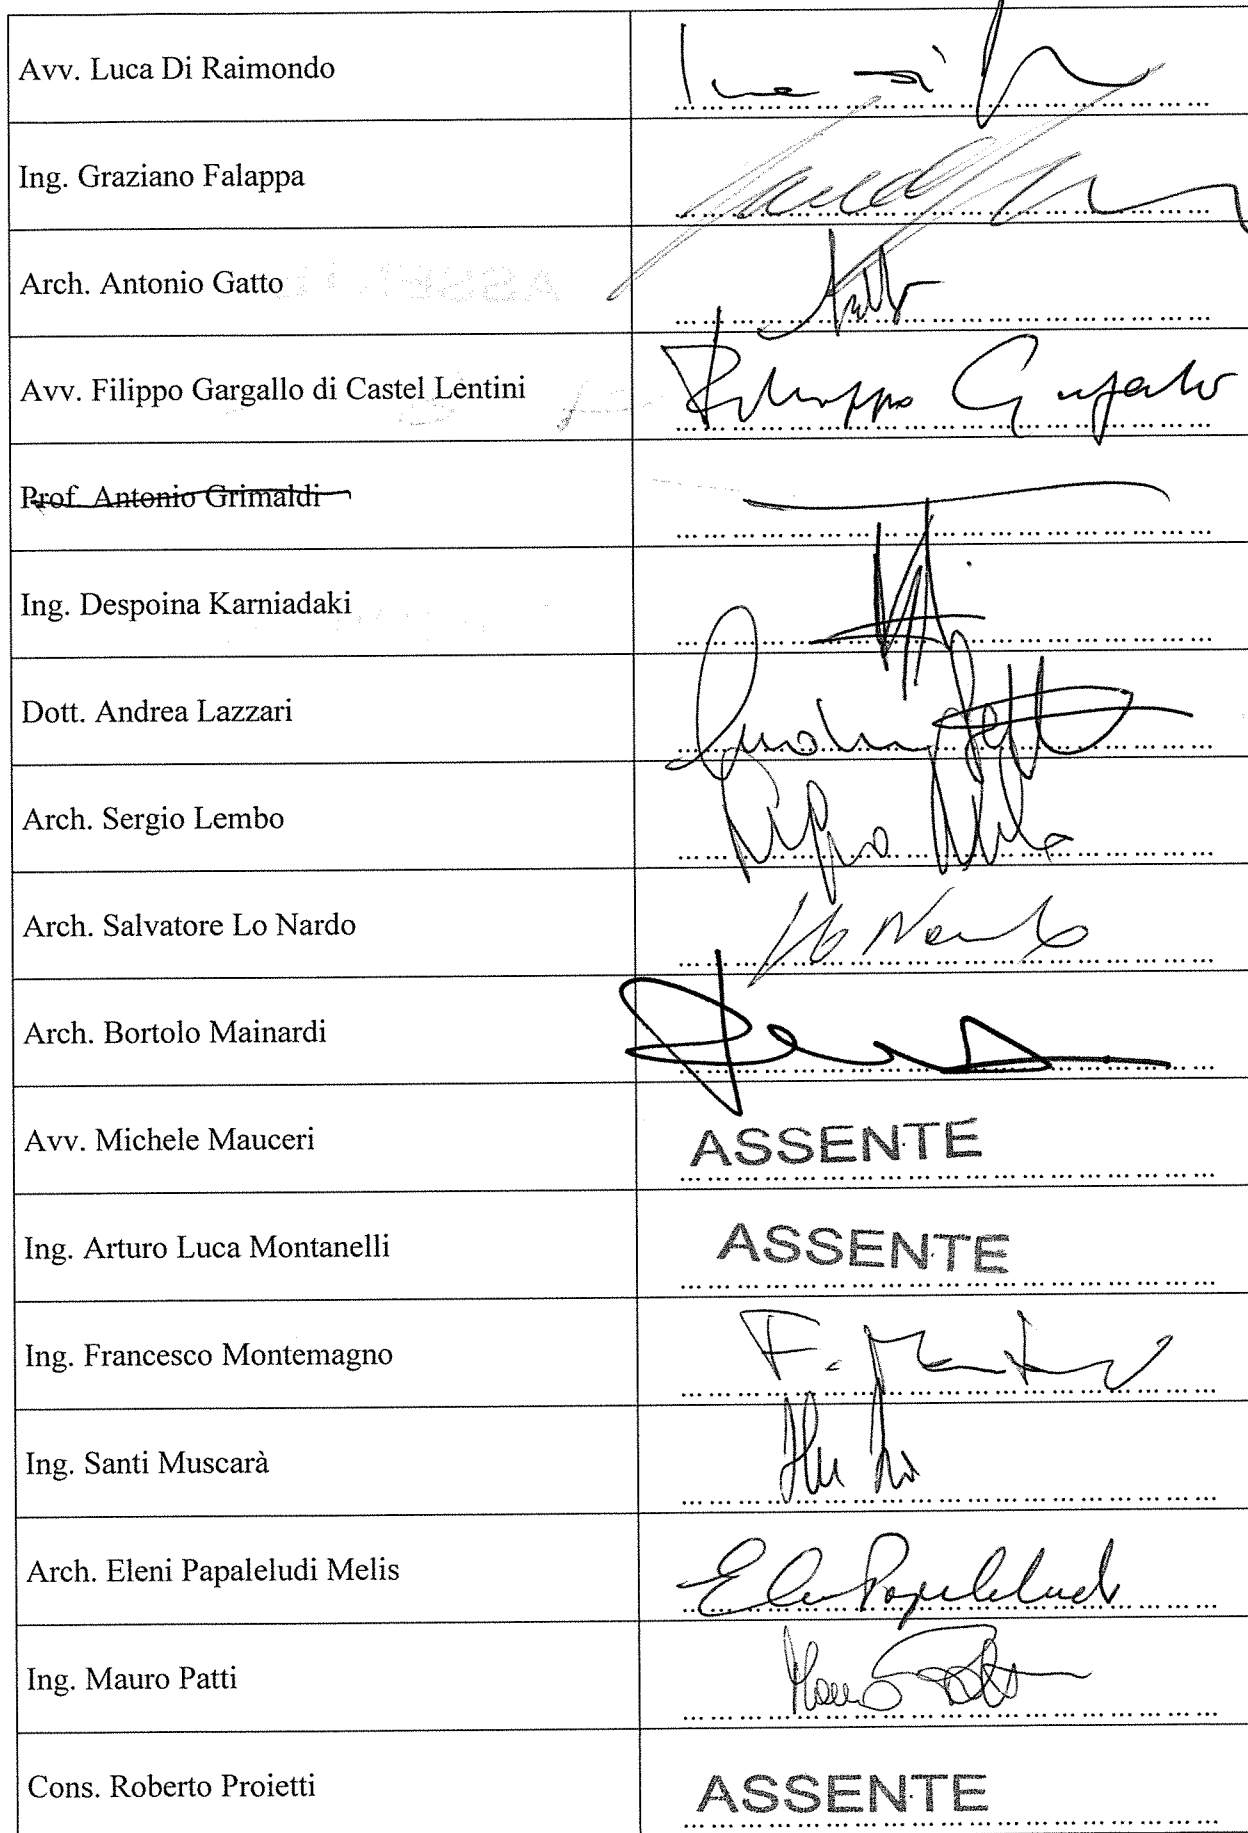 Avv. Luca Di Raimondo
Ing. Graziano Falappa
Arch. Antonio Gatto
Avv. Filippo Gargallo di Castel Lentini
Filippo Gargallo
Prof. Antonio Grimaldi
Ing. Despoina Karniadaki
Dott. Andrea Lazzari
Arch. Sergio Lembo
Arch. Salvatore Lo Nardo
Lo Nardo
Arch. Bortolo Mainardi
Avv. Michele Mauceri ASSENTE
Ing. Arturo Luca Montanelli ASSENTE
Ing. Francesco Montemagno
Ing. Santi Muscarà
Arch. Eleni Papaleludi Melis
Ing. Mauro Patti
Cons. Roberto Proietti ASSENTE